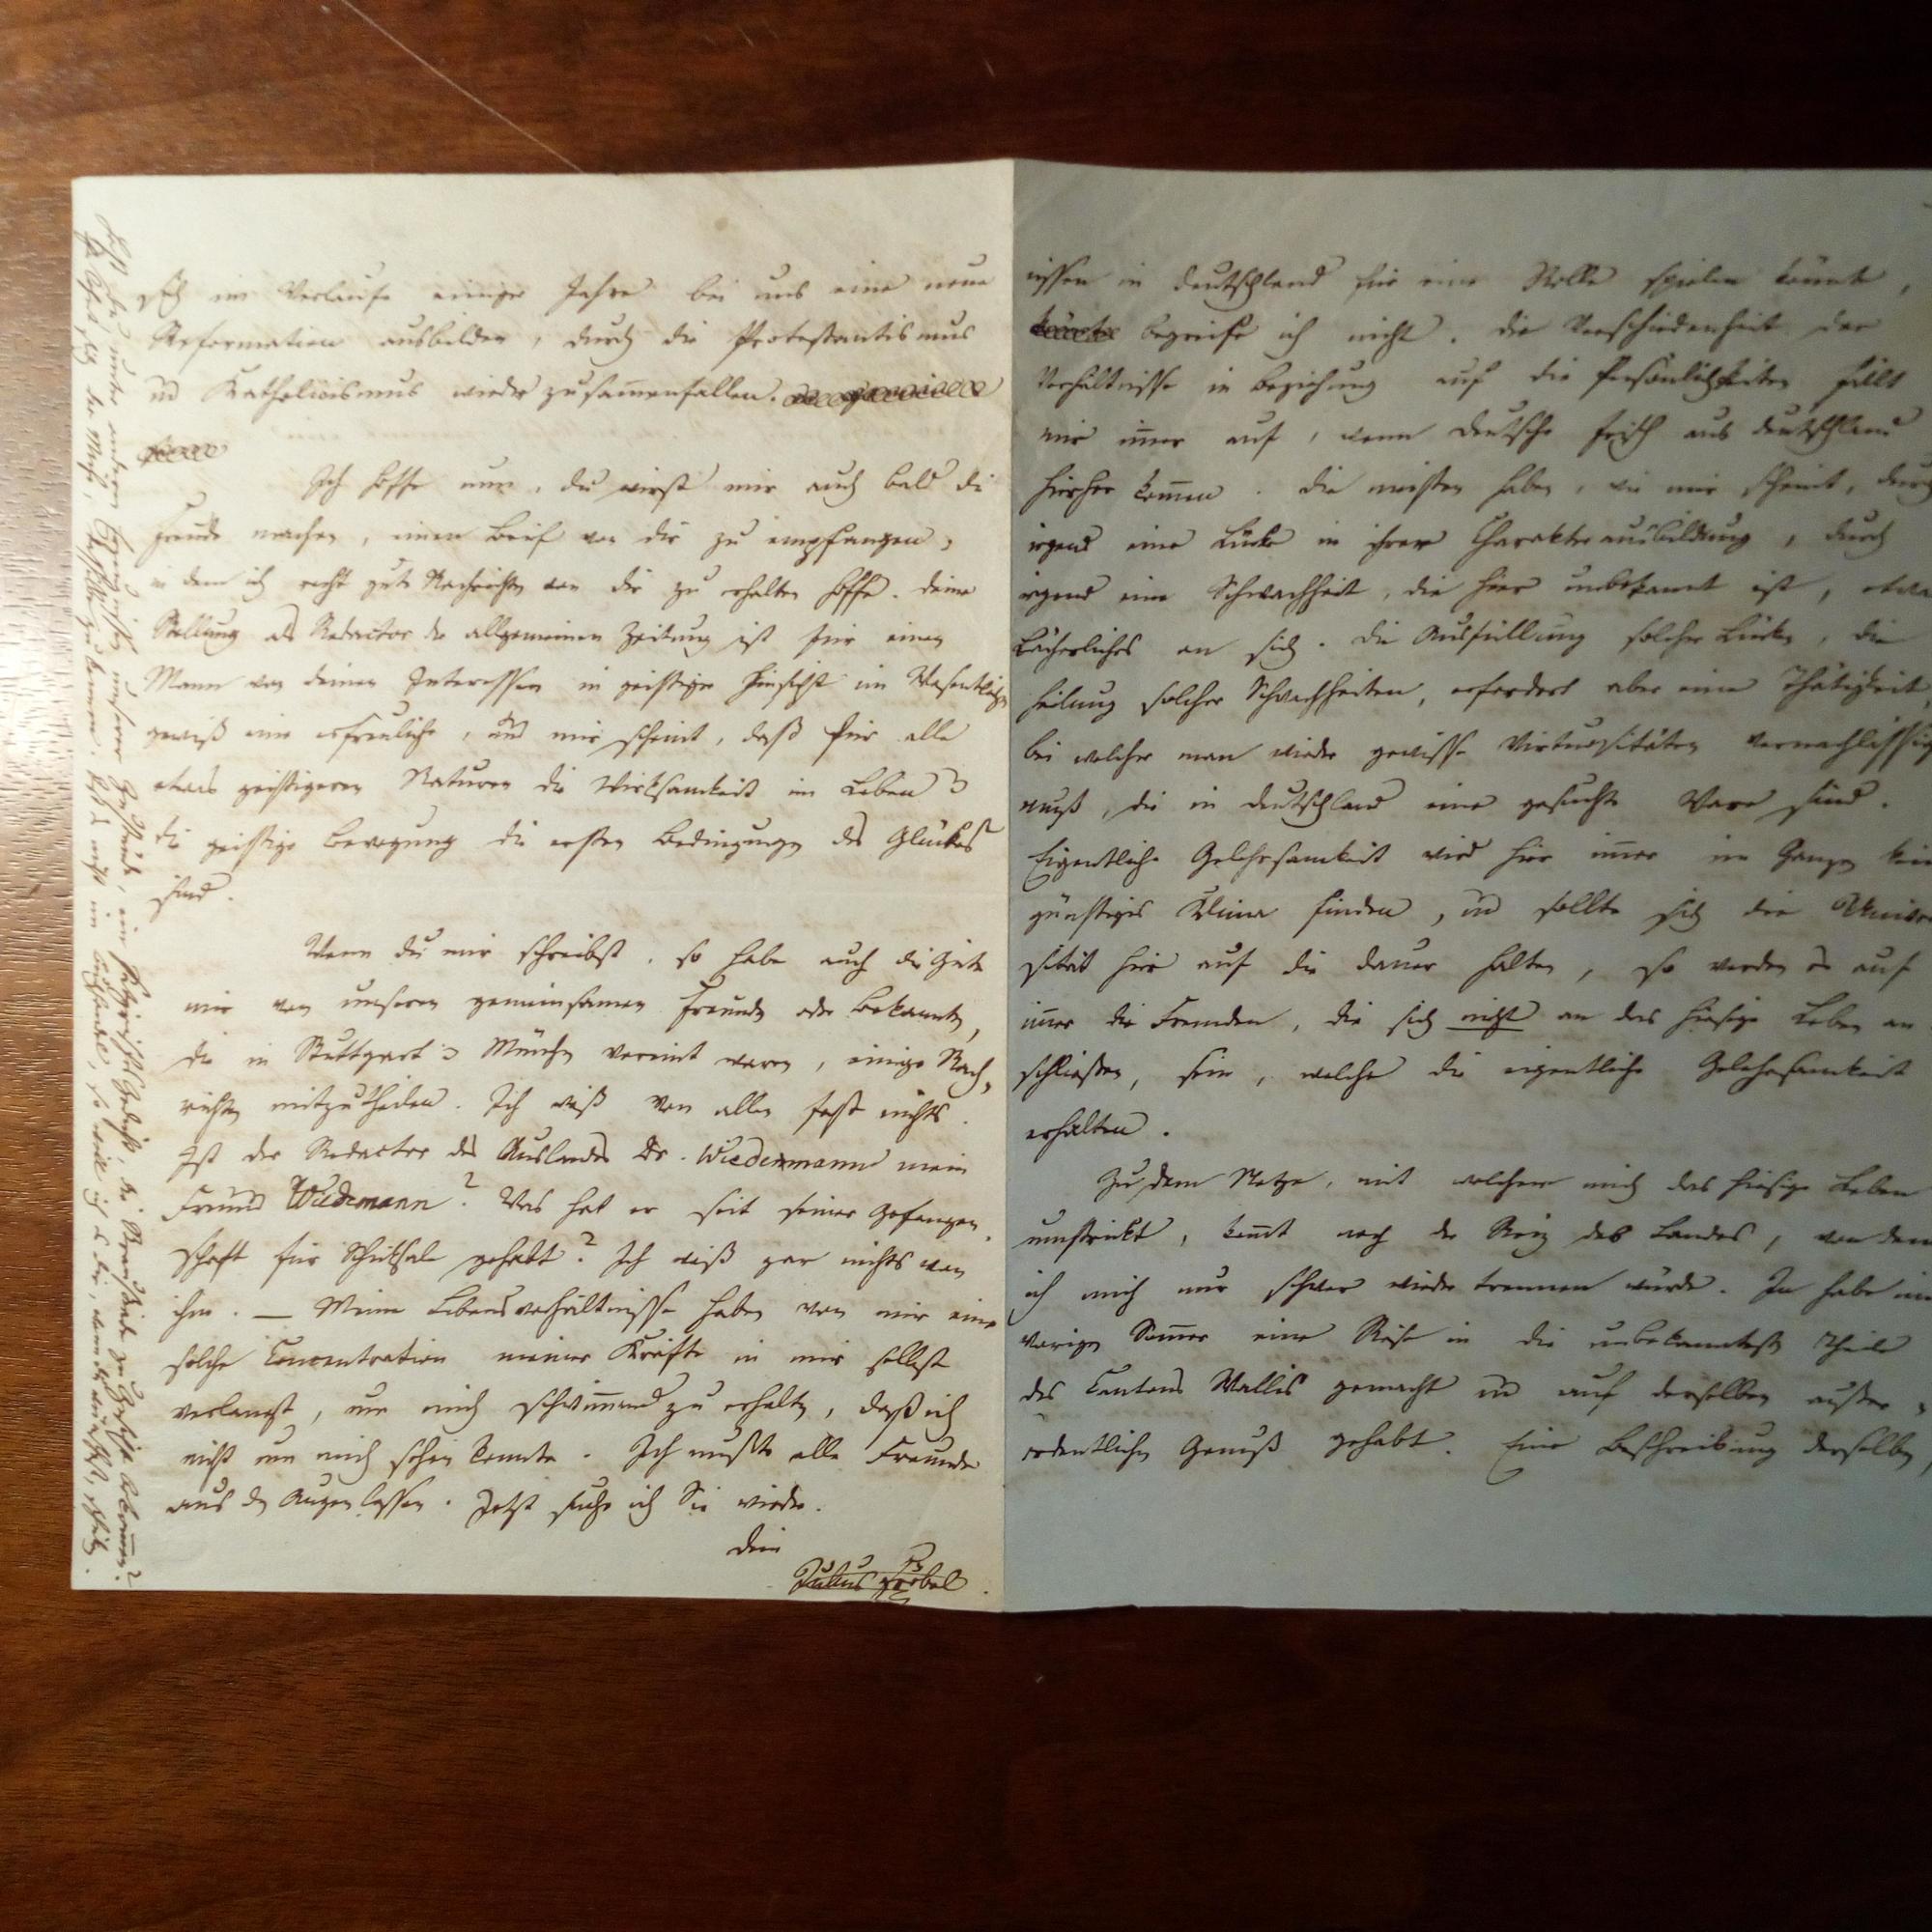 sich im Verlaufe einiger Jahre bei uns eine neue
Reformation ausbilden, durch die Protestantismus
ud Katholicismus wieder zusam̄enfallen.
Ich hoffe nun, du wirst mir auch bald die
Freude machen, einen Brief von dir zu empfangen,
in dem ich recht gute Nachrichten von dir zu erhalten hoffe. Deine
Stellung als Redactor der allgemeinen Zeitung ist für einen
Mann von deinen Interessen in geistiger Hinsicht im Wesentlichen
gewiß eine erfreuliche, und mir scheint, daß für alle
etwas geistigeren Naturen die Wirksamkeit im Leben &
die geistige Bewegung die ersten Bedingungen des Glückes
sind.
Wenn du mir schreibst, so habe auch die Güte
mir von unseren gemeinsamen Freunden oder Bekannten,
die in Stuttgart & München vereint waren, einige Nach-
richten mitzutheilen. Ich weiß von allen fast nichts.
Ist der Redactor des Auslandes Dr. Wiedenmann mein
Freund Widemann? Was hat er seit seiner Gefangen-
schaft für Schicksale gehabt? Ich weiß gar nichts von
ihm. — Meine Lebensverhältnisse haben von mir eine
solche Concentration meiner Kräfte in mir selbst
verlangt, um mich schwim̄end zu erhalten, daß ich
nicht um mich sehen konnte. Ich mußte alle Freunde
aus den Augen lassen. Jetzt suche ich Sie wieder.
Dein
Julius Fröbel.
Hast du unter anderen Erzeugnissen unserer Zustände, ein
zu Gesicht bekom̄en?
nicht im Buchhandel, so will ich es dir, wenn du wünschst, schicken.
nissen in Deutschland für eine Rolle spielen könnte,
begreife ich nicht. Die Verschiedenheit der
Verhältnisse in Beziehung auf die Persönlichkeiten fällt
mir im̄er auf, wenn Deutsche frisch aus Deutschland
hierher kom̄en. Die meisten haben, wie mir scheint, durch
irgend eine Lücke in ihrer Charakterausbildung, durch
irgend eine Schwachheit, die hier unbekannt ist, etwas
Lächerliches an sich. Die Ausfüllung solcher Lücken, die
Heilung solcher Schwachheiten, erfordert aber eine Thätigkeit,
bei welcher man wieder gewisse Virtuositäten vernachlässig
muß, die in Deutschland eine gesuchte Ware sind.
Eigentliche Gelehrsamkeit wird hier im̄er im Ganzen kein
günstiges Klima finden, ud sollte sich die Univer
sität hier auf die Dauer halten, so werden es auf
im̄er die Fremden, die sich nicht an das hiesige Leben an
schließen, sein, welche die eigentliche Gelehrsamkeit
erhalten.
Zu dem Netze, mit welchem mich das hiesige Leben
umstrickt, kom̄t noch der Reiz des Landes, von dem
ich mich nur schwer wieder trennen würde. Ich habe im
vorigen Som̄er eine Reise in die unbekanntesten Theile
des Cantons Wallis gemacht ud auf derselben außer-
ordentlichen Genuß gehabt. Eine Beschreibung derselben,